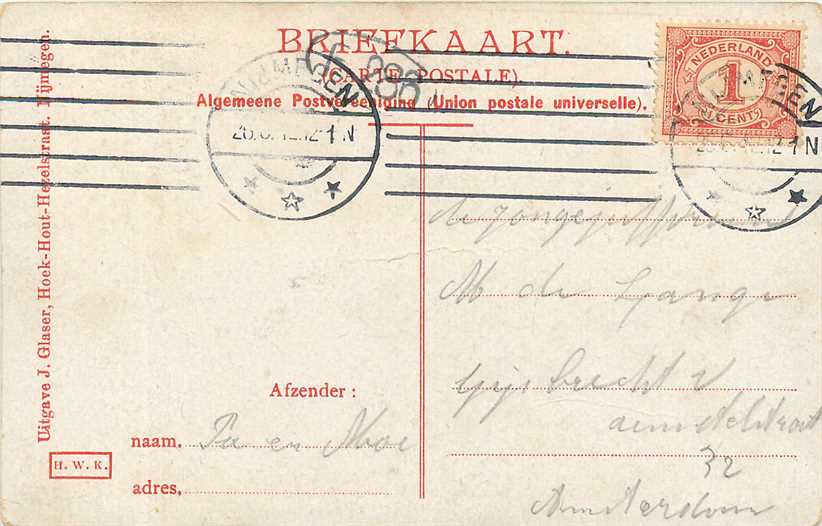 BRIEFKAART.
(CARTE POSTALE).
Algemeene Postvereeniging (Union postale universelle).
NEDERLAND
1
CENT
NIJMEGEN
1 N
NIJMEGEN
1 N
Uitgave J. Glaser, Hoek-Hout-Hezelstraat. Nijmegen.
H. W. K.
Afzender :
naam. Pa en Moe
adres.
de Jongejuffrouw
M de Lange
Gijsbrecht v
aemstelstraat
32
Amsterdam